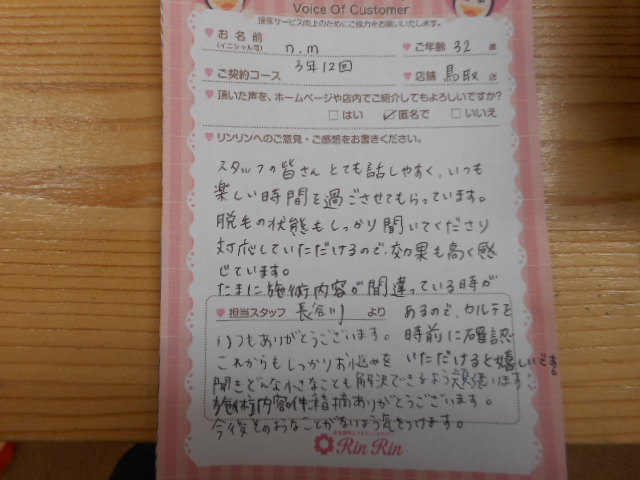 Voice Of Customer
接客サービス向上のためにご協力をお願いいたします。
お名前
(イニシャル可)
n,m
ご年齢 32 歳
ご契約コース 3年12回
店舗 鳥取 店
頂いた声を、ホームページや店内でご紹介してもよろしいですか?
はい 匿名で いいえ
リンリンへのご意見・ご感想をお書きください。
スタッフの皆さん とても話しやすく、いつも
楽しい時間を過ごさせてもらっています。
脱毛の状態もしっかり聞いてくださり
対応していただけるので、効果も高く感
じています。
たまに施術内容が間違っている時が
あるので、カルテを
時前に確認
いただけると嬉しいです。
担当スタッフ 長谷川 より
いつもありがとうございます。
これからもしっかりお込みを
聞きどんな小さなことも解決できるよう頑張ります
施術内容の件 指摘ありがとうございます。
今後そのようなことがないよう気をつけます。
Rin Rin